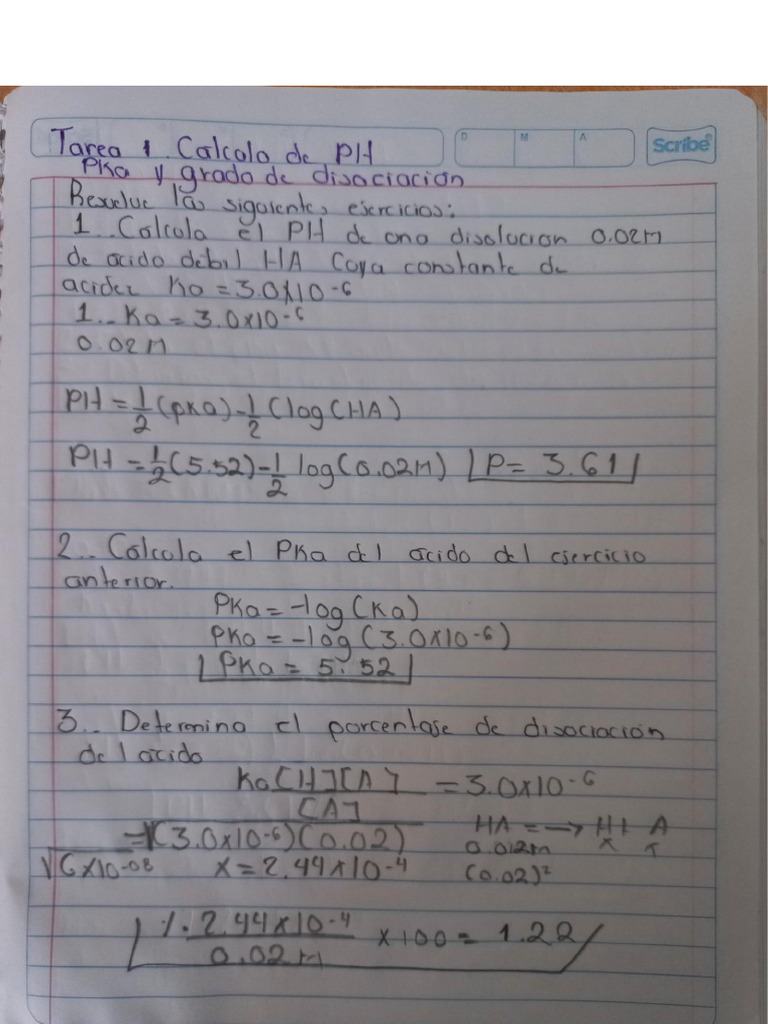 Tarea 1. Calculo de PH
D M A
Scribe
PKa y grado de disociacion
Resuelve los siguientes ejercicios:
1.. Calcula el PH de una disolucion 0.02M
de acido debil HA Cuya constante de
acidez Ka = 3.0x10-6
1.. Ka = 3.0x10-6
0.02M
PH = 1/2 (pKa) - 1/2 (log(HA)
PH = 1/2 (5.52) - 1/2 log(0.02M) P= 3.61
2.. Calcula el PKa del acido del ejercicio
anterior.
PKa = -log(Ka)
PKa = -log(3.0x10-6)
PKa = 5.52
3.. Determina el porcentaje de disociación
del acido
Ka [H][A] / [A] = 3.0x10-6
=√(3.0x10-6)(0.02) HA = → H+ A
0.012m x x
√6x10-08 x = 2.44x10-4 (0.02)²
%. 2.44x10-4 / 0.02M x100 = 1.22